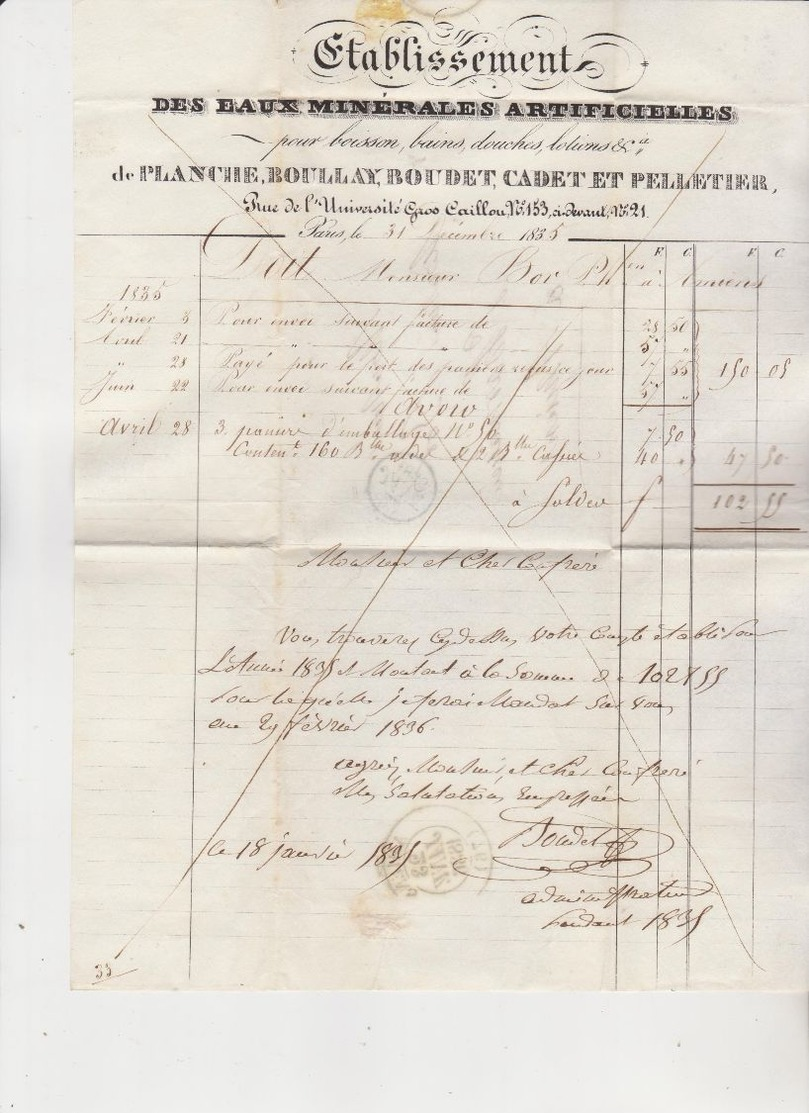 Etablissement
DES EAUX MINÉRALES ARTIFICIELLES
pour boisson, bains, douches, lotions &ca
de PLANCHE, BOULLAY, BOUDET, CADET ET PELLETIER,
Rue de l'Université Gros Caillou, No. 153, ci-devant, No. 21.
Paris, le 31 Décembre 1835
F. C. F. C.
Doit Monsieur Bor Ph en à amiens
1835
Février 3 Pour envoi suivant facture de 28 50
Avril 21 " "
" 28 Payé pour le port des paniers ce jour 17 55 150 05
Juin 22 Pour envoi suivant facture de
Avoir
Avril 28 3 paniers d'emballage No 50 7 50
Conten.t 160 Blles vides & 2 Blles 40 " 47 50
à Solder f 102 55
Monsieur et Cher Confrère
Vous trouverez cy dessus votre Compte établi pour
L'Année 1835 et Montant à la Somme de 102 f 55
pour laquelle je ferai Mandat sur vous
au 29 février 1836.
agréez, Monsieur et Cher Confrère
Mes Salutations Empressées
Boudet
Ce 18 janvier 1835
administrateur
pendant 1835
33